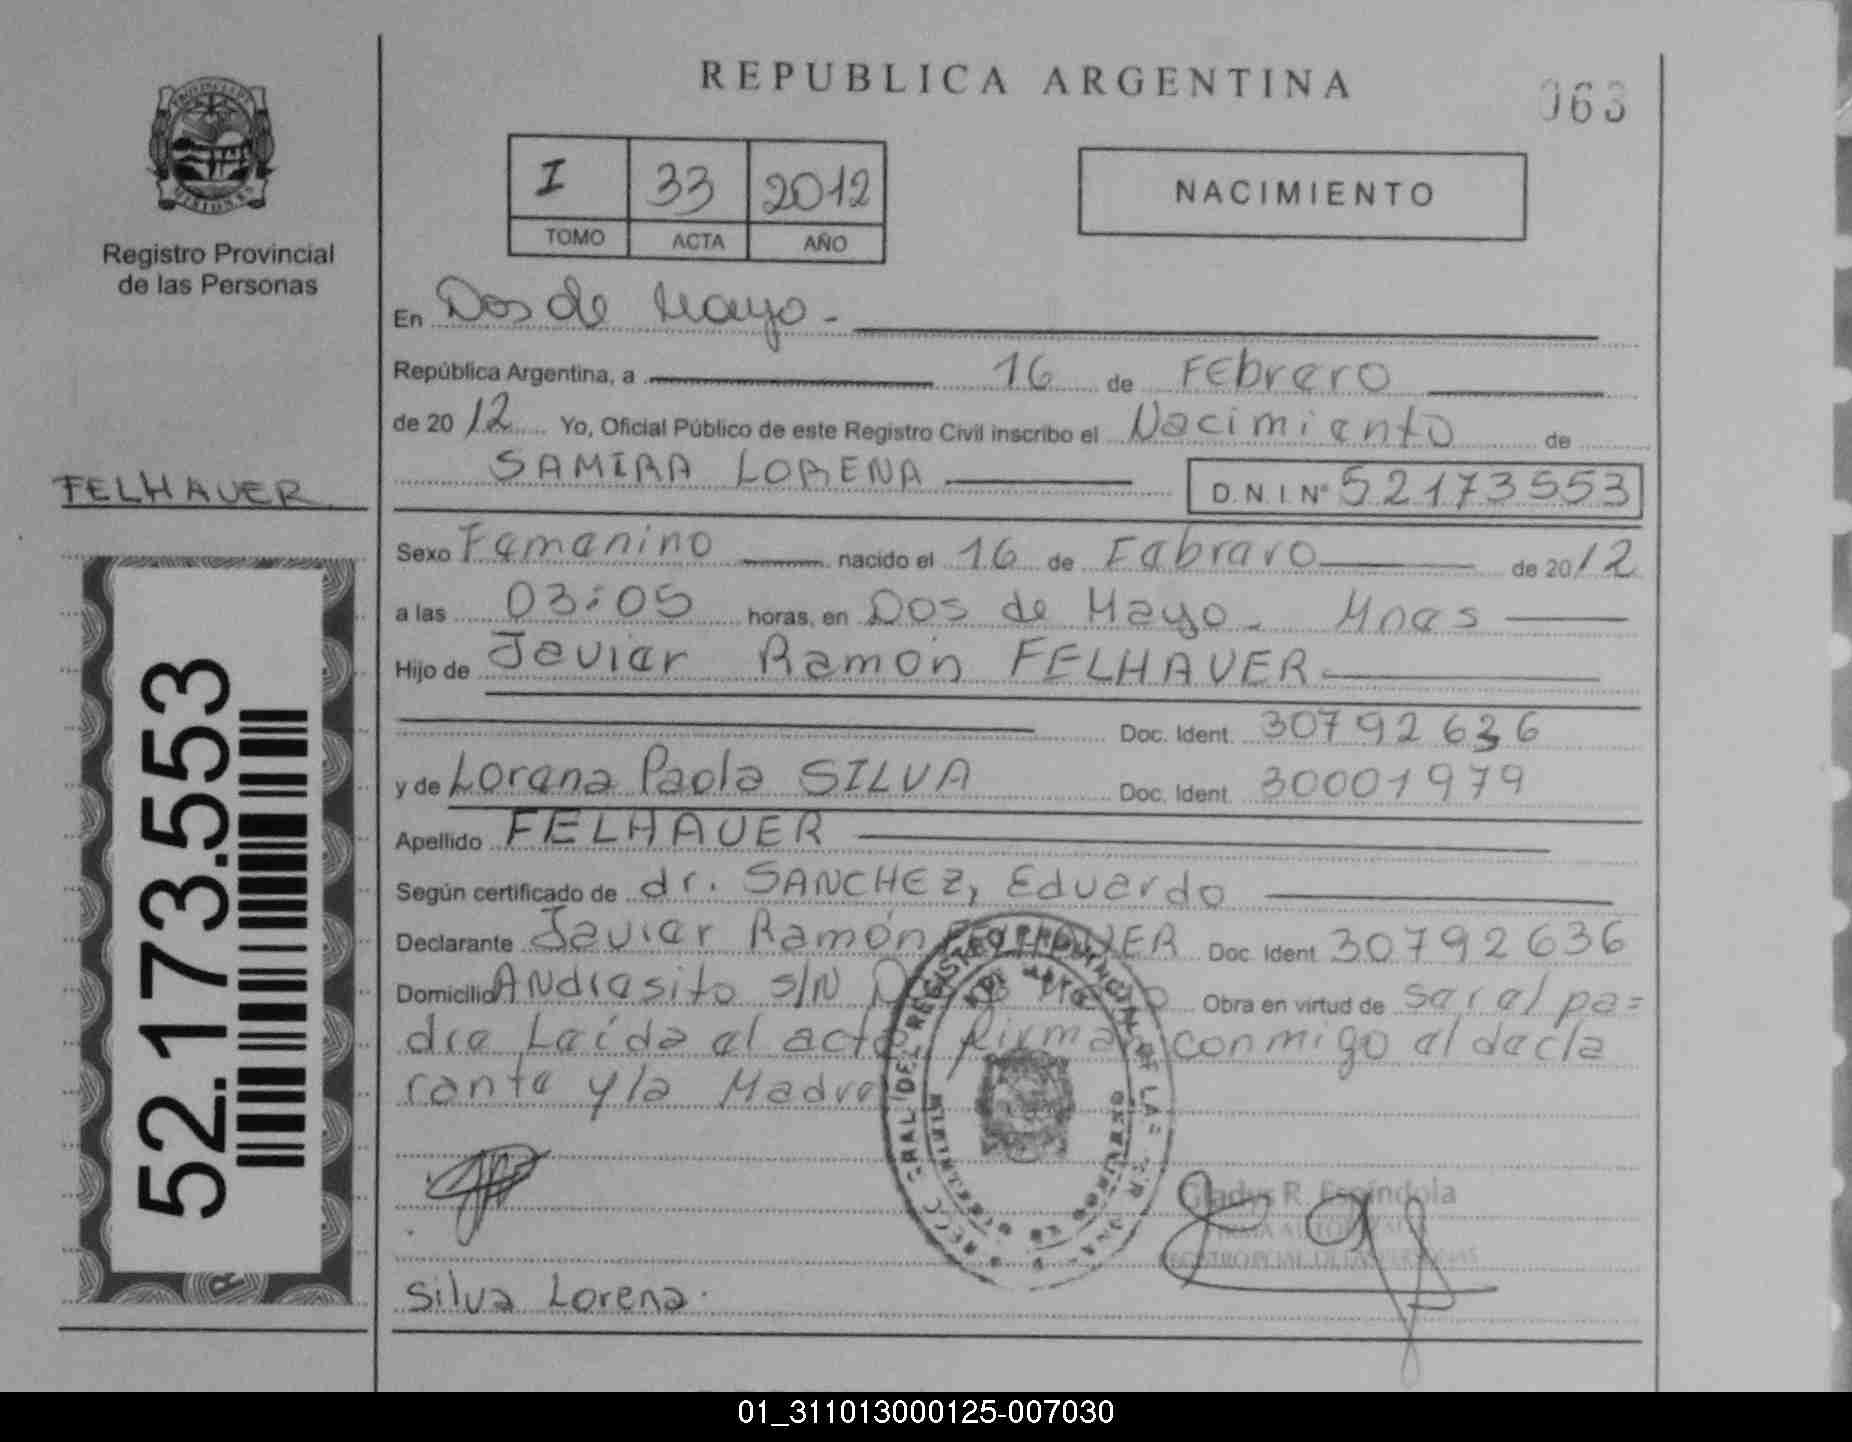 REPUBLICA ARGENTINA
063
PROVINCIA DE
MISIONES
Registro Provincial
de las Personas
I 33 2012
TOMO ACTA AÑO
NACIMIENTO
En Dos de Mayo.-
República Argentina, a 16 de FEbrero
de 2012 Yo, Oficial Público de este Registro Civil inscribo el Nacimiento de
SAMIRA LORENA D.N.I. Nº 52173553
FELHAUER
Sexo Femenino nacido el 16 de Febrero de 2012
a las 03:05 horas, en Dos de Mayo - Mnes
Hijo de Javier Ramón FELHAUER
Doc. Ident. 30792636
y de Lorena Paola SILVA Doc. Ident. 30001979
Apellido FELHAUER
Según certificado de dr. SANCHEZ, Eduardo
Declarante Javier Ramón FELHAUER Doc. Ident. 30792636
Domicilio ANdresito S/N Obra en virtud de ser el pa=
dre Leída el acta firman conmigo el decla
rante y la Madre
52.173.553
Gladys R. Espíndola
FIRMA AUTORIZADA
REGISTRO PCIAL. DE LAS PERSONAS
Silva Lorena.
01_311013000125-007030